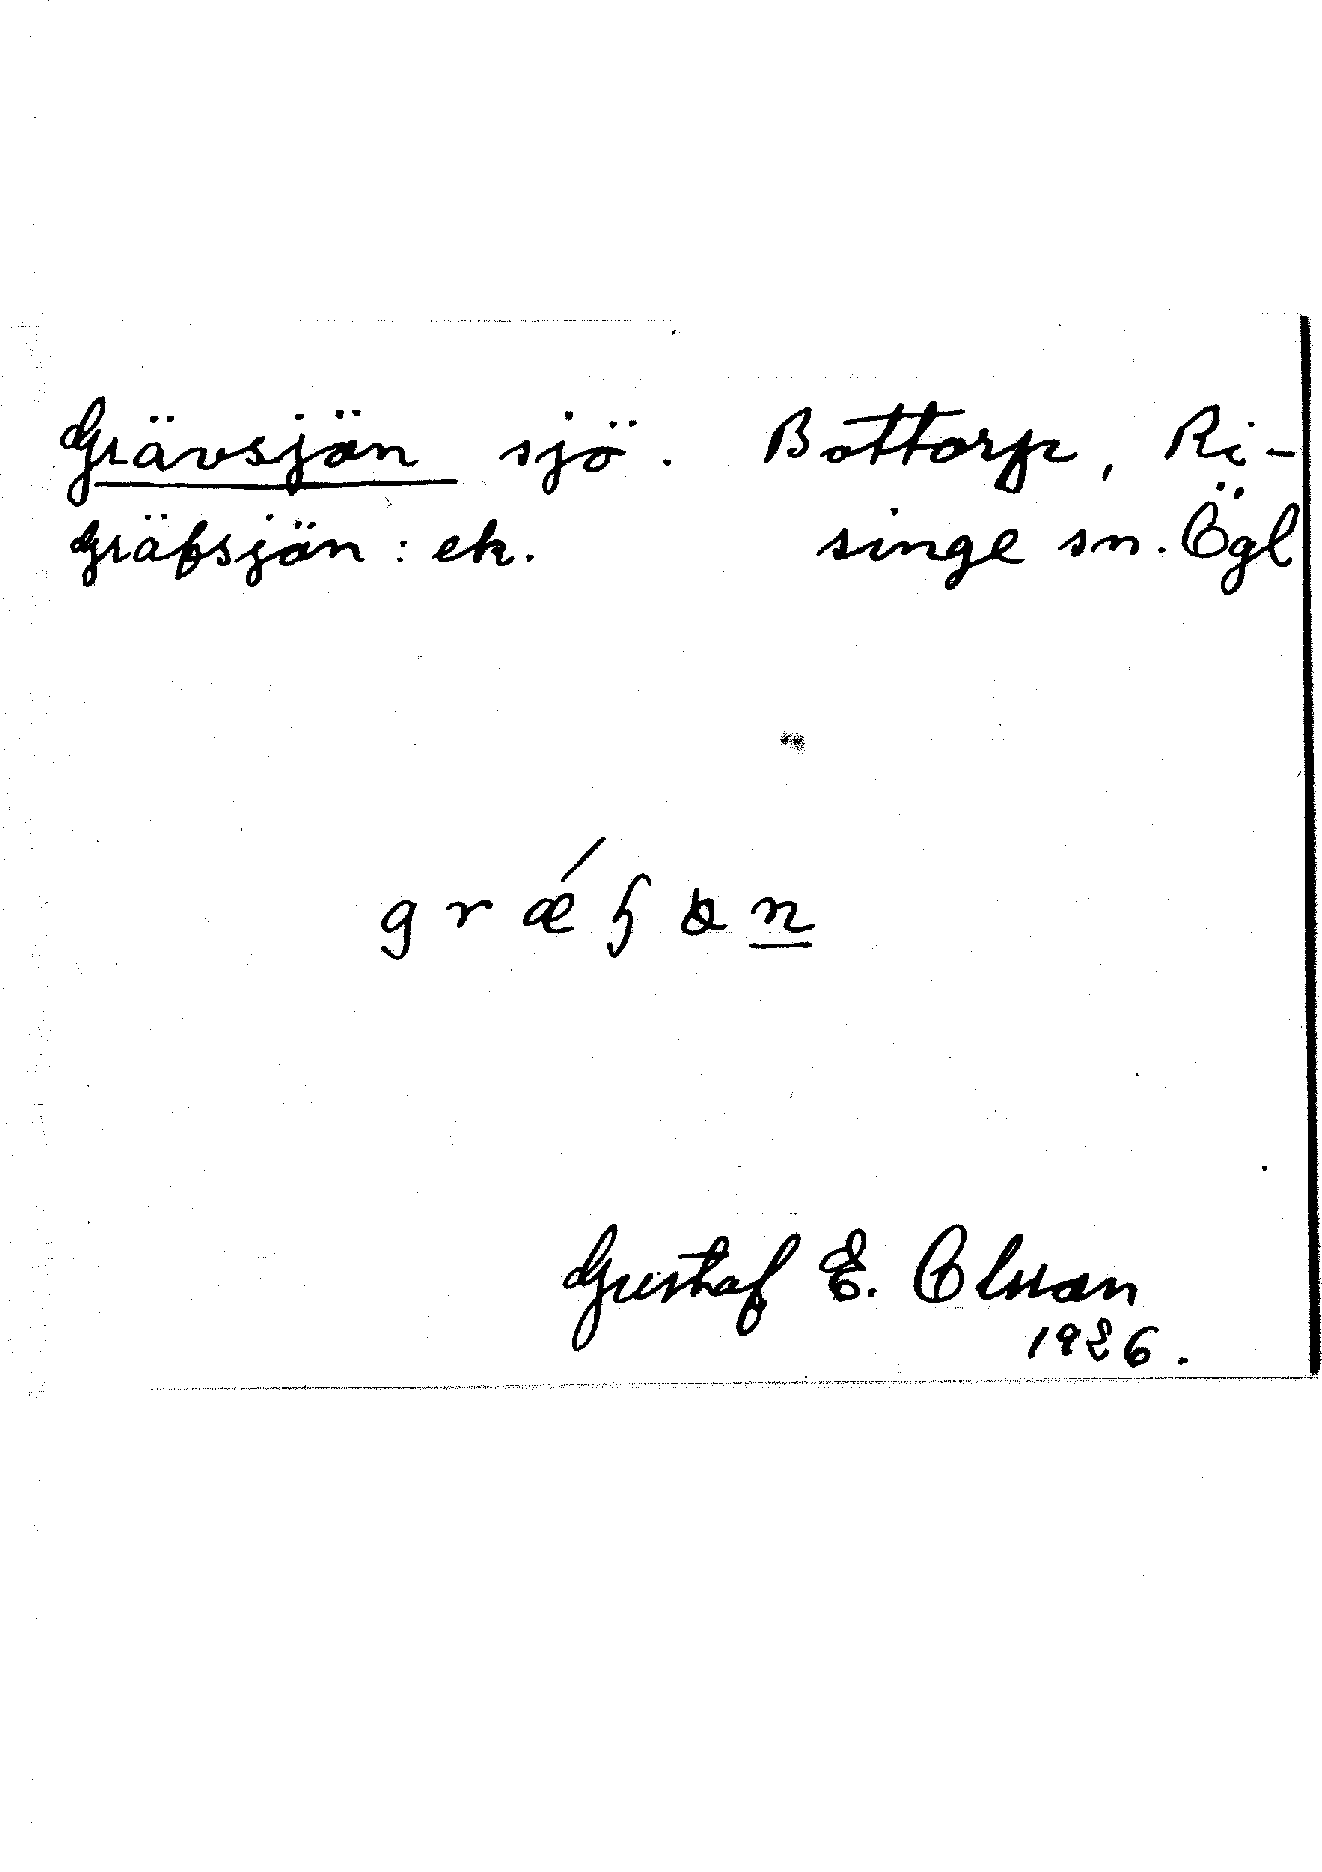 Grävsjön sjö. Bottorp, Ri-
Gräfsjön: ek. singe sn. Ögl
Gustaf E. Olsson
1926.